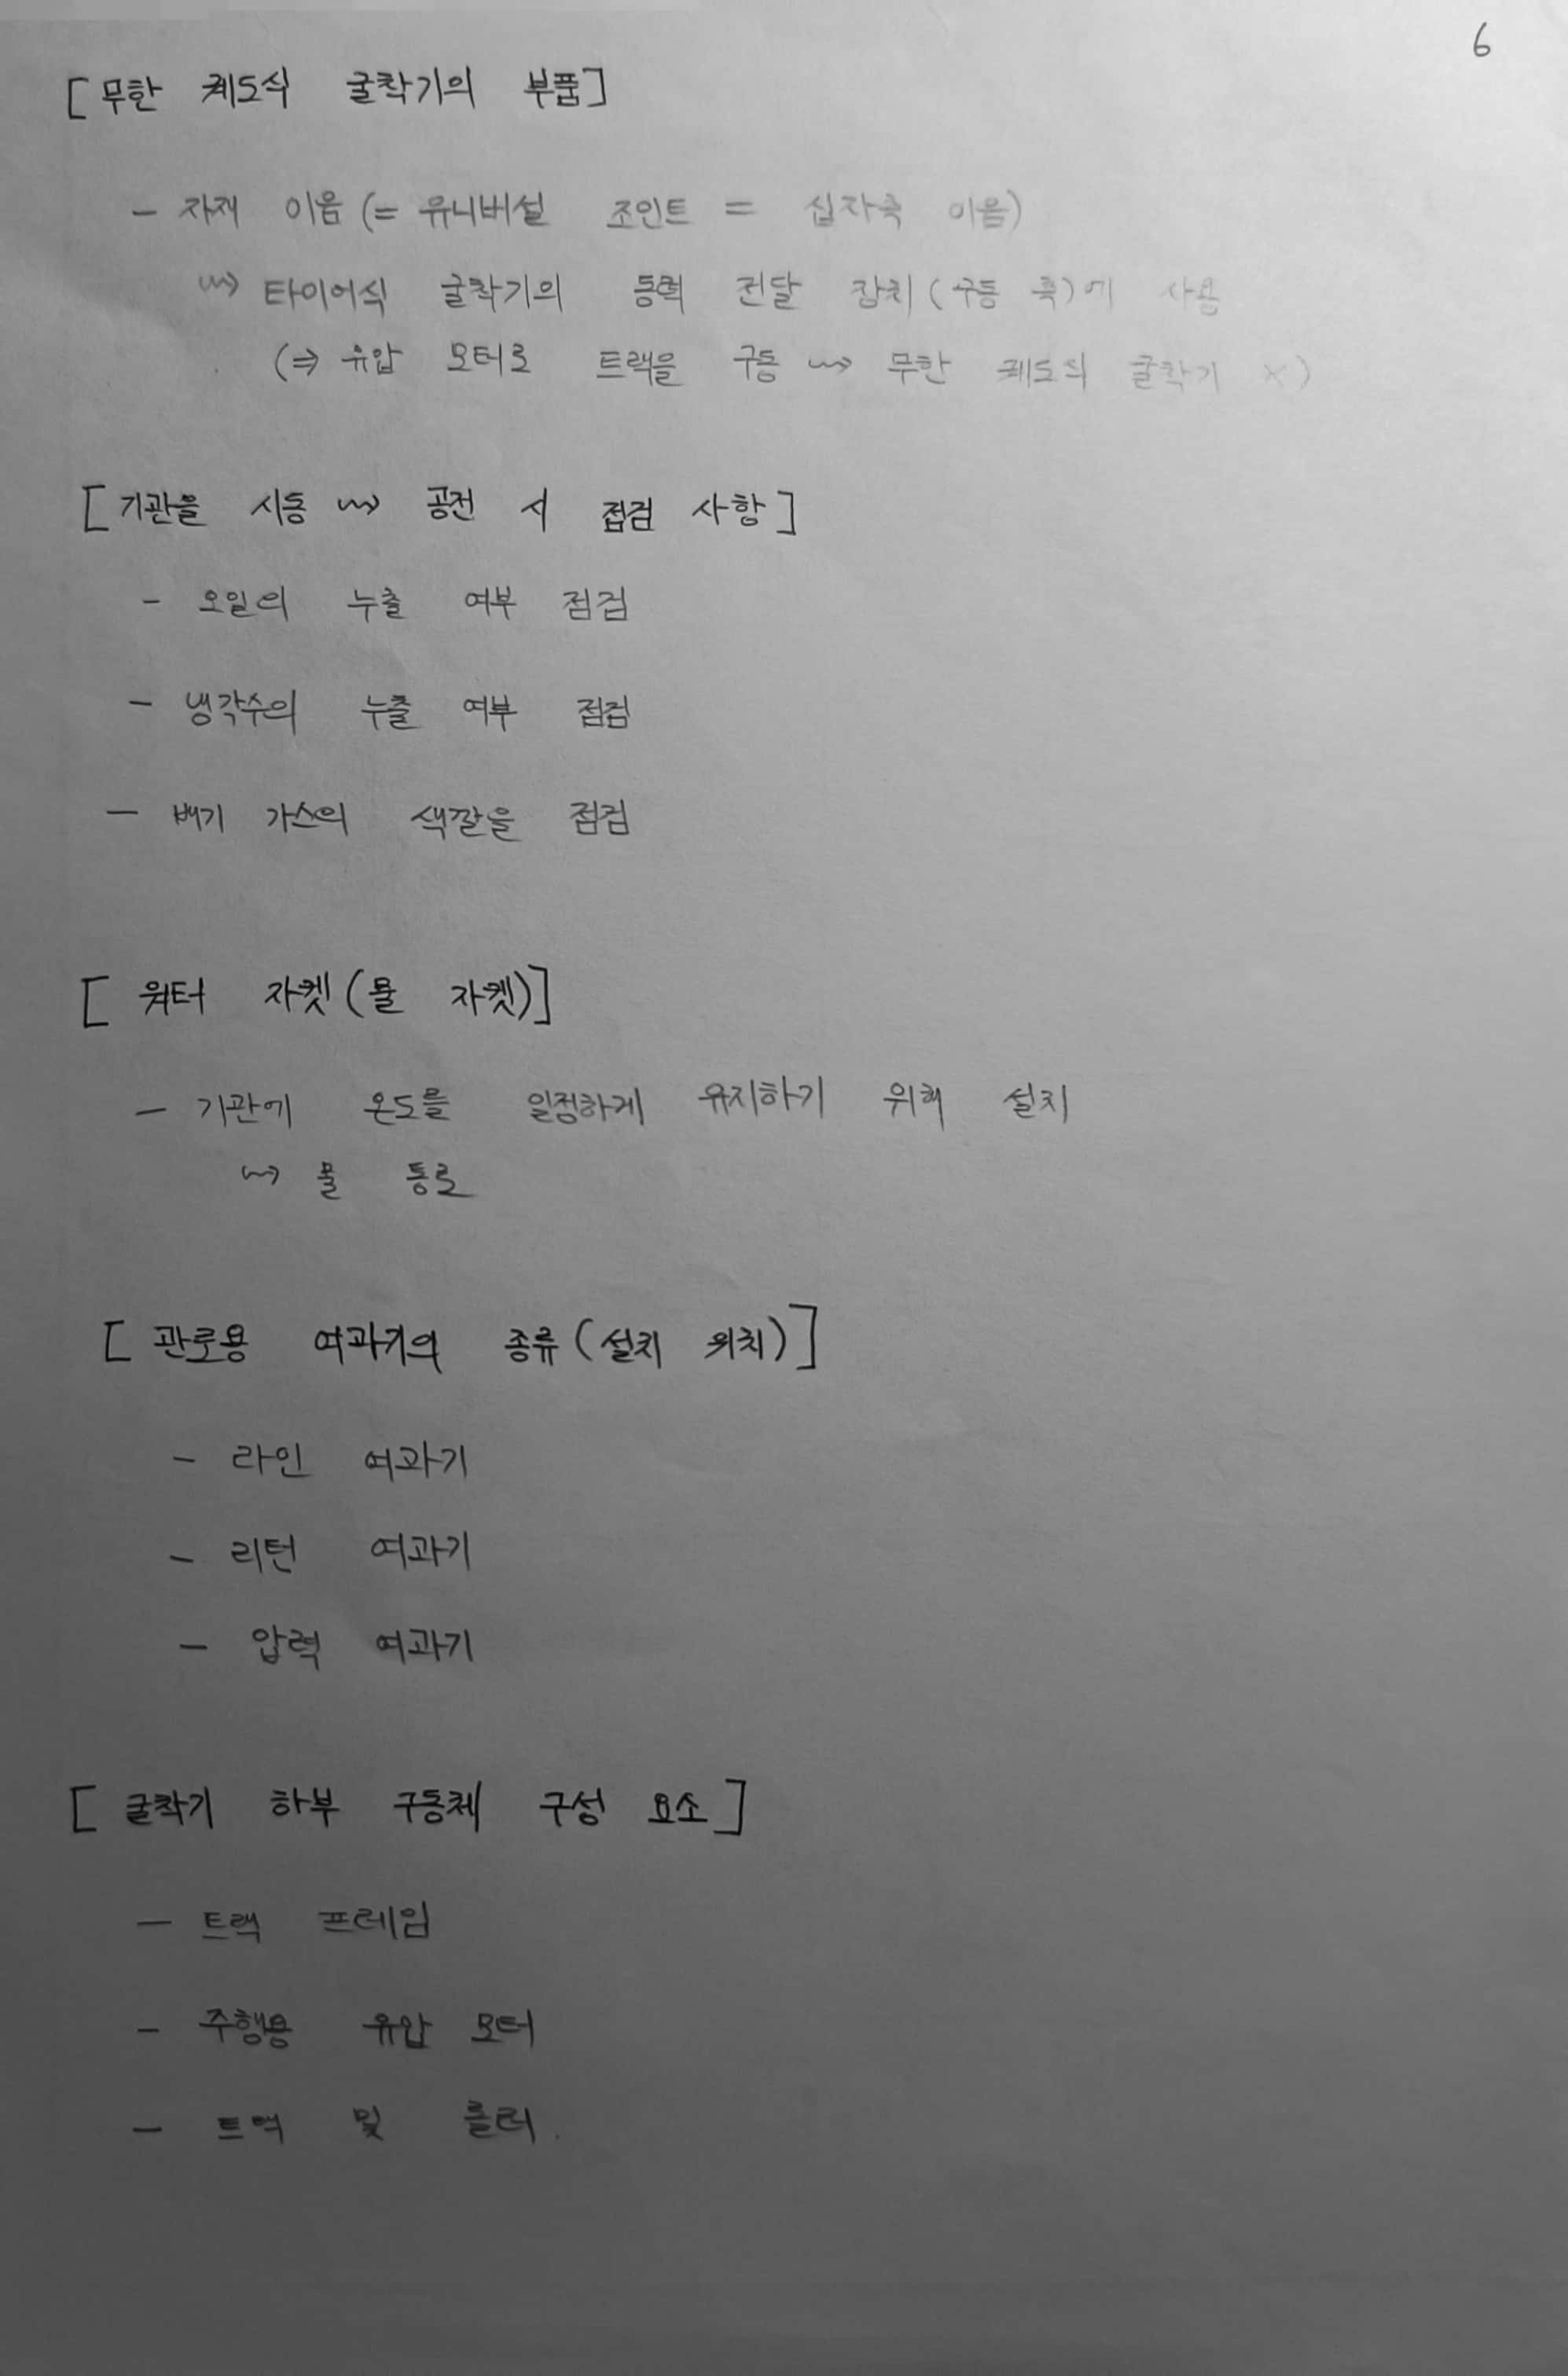 6
[무한 궤도식 굴착기의 부품]
- 자재 이음 (= 유니버설 조인트 = 십자축 이음)
⇝ 타이어식 굴착기의 동력 전달 장치(구동 축)에 사용
(⇒ 유압 모터로 트랙을 구동 ⇝ 무한 궤도식 굴착기 ×)
[기관을 시동 ⇝ 공전 시 점검 사항]
- 오일의 누출 여부 점검
- 냉각수의 누출 여부 점검
- 배기 가스의 색깔을 점검
[워터 자켓(물 자켓)]
- 기관에 온도를 일정하게 유지하기 위해 설치
⇝ 물 통로
[관로용 여과기의 종류(설치 위치)]
- 라인 여과기
- 리턴 여과기
- 압력 여과기
[굴착기 하부 구동체 구성 요소]
- 트랙 프레임
- 주행용 유압 모터
- 트랙 및 롤러.